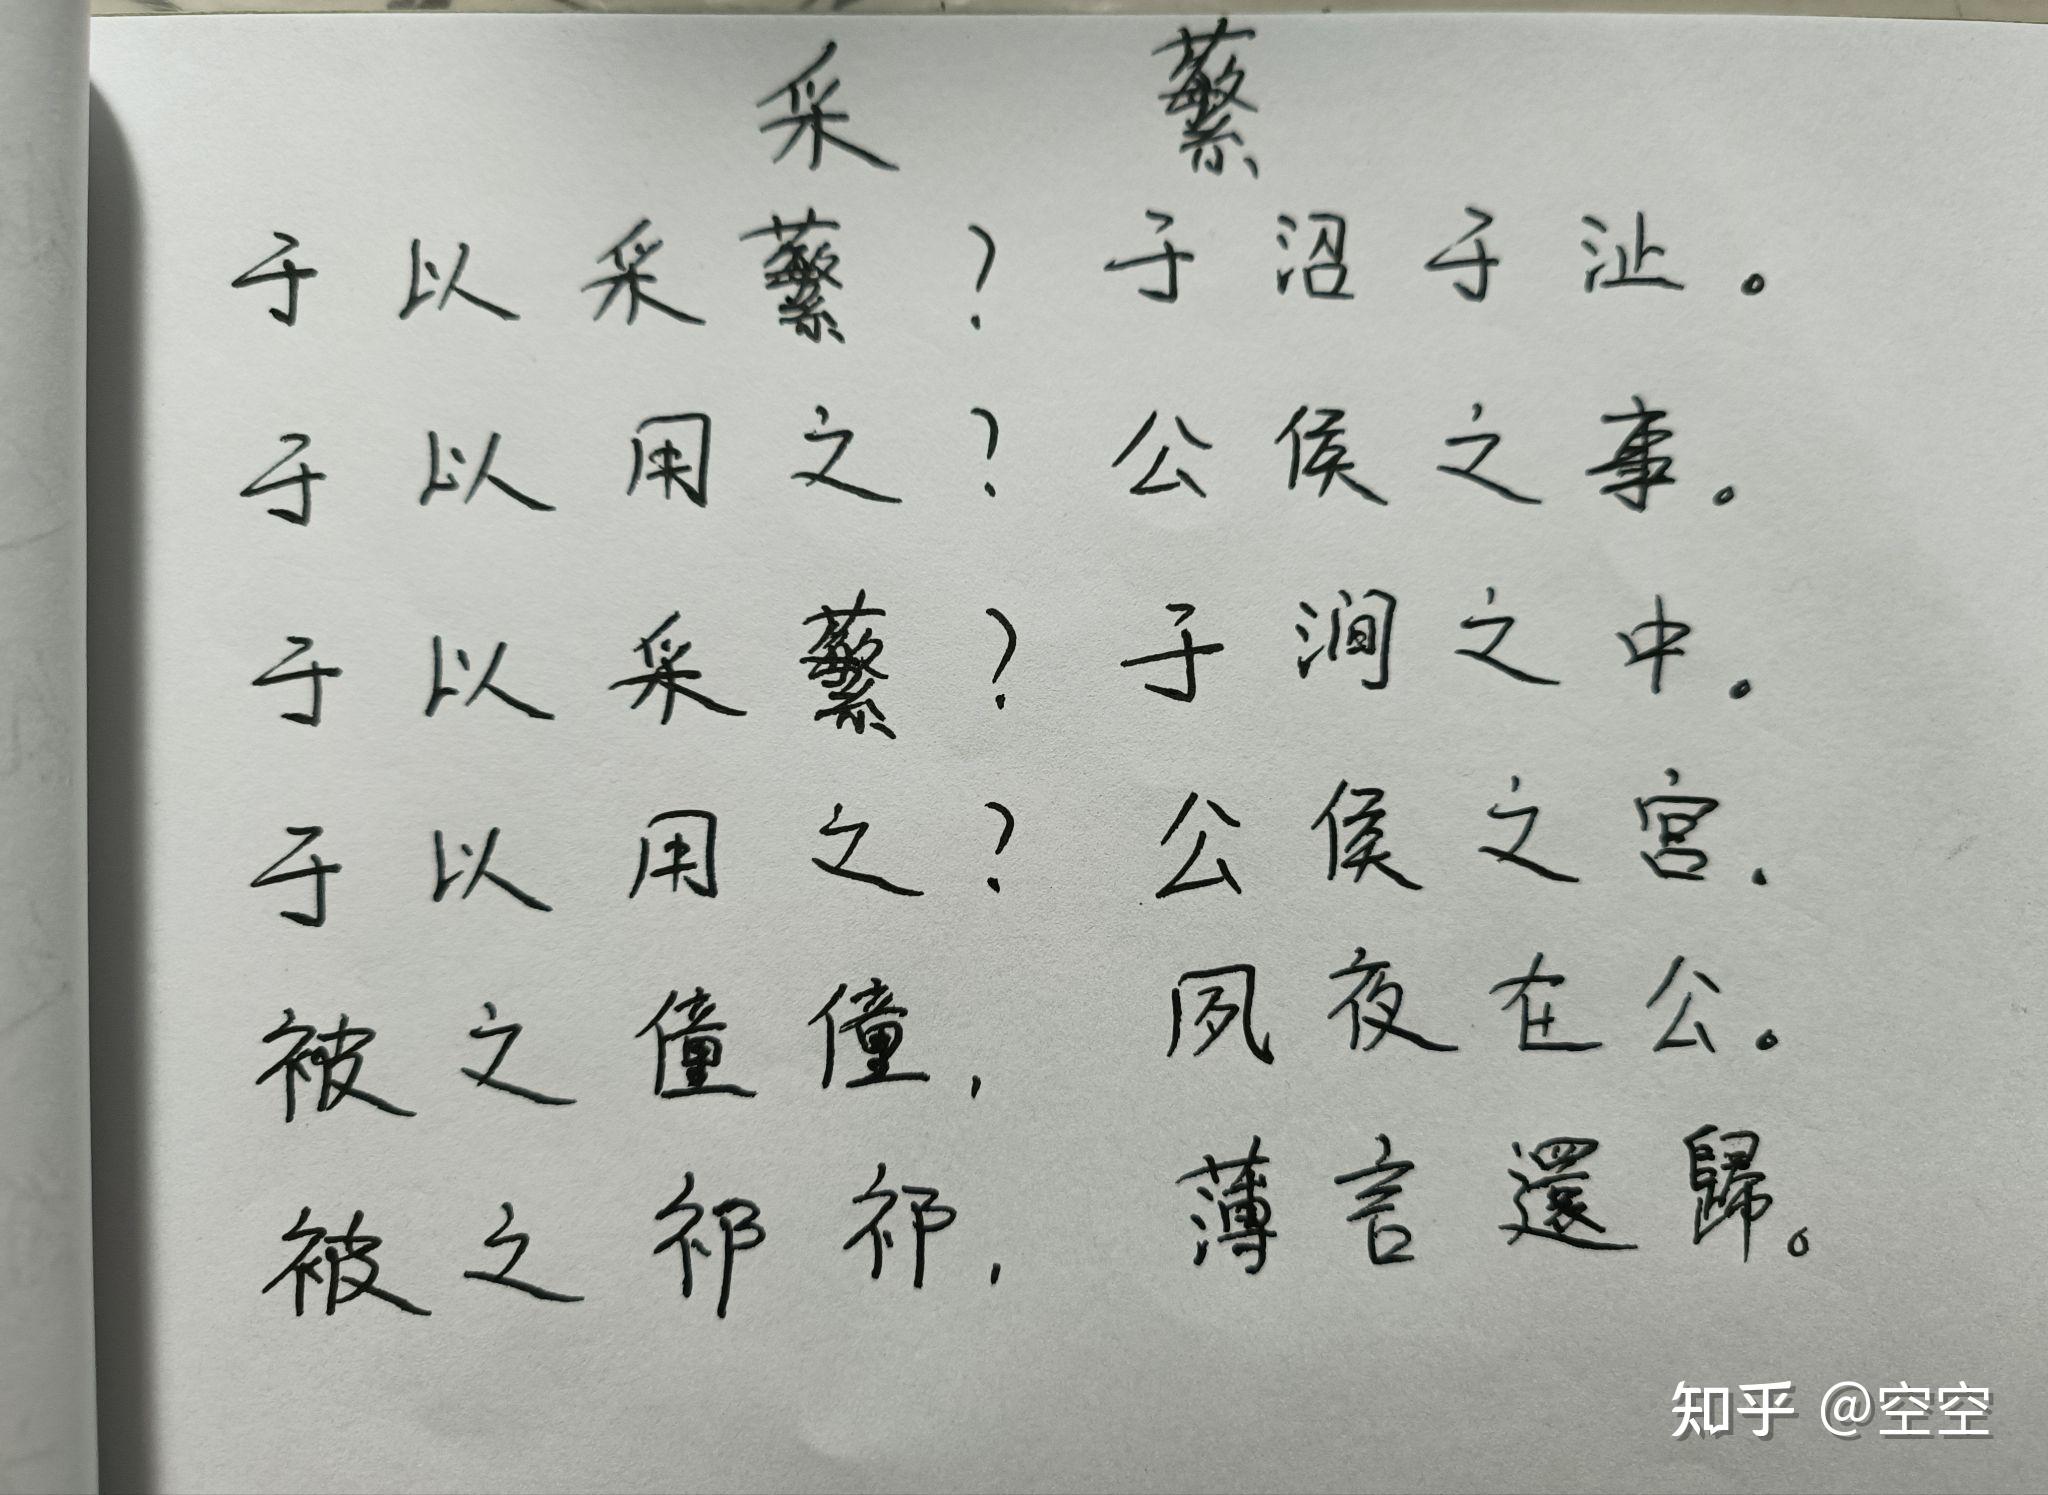 采蘩
于以采蘩？于沼于沚。
于以用之？公侯之事。
于以采蘩？于涧之中。
于以用之？公侯之宫.
被之僮僮，夙夜在公。
被之祁祁，薄言還歸。
知乎 @空空